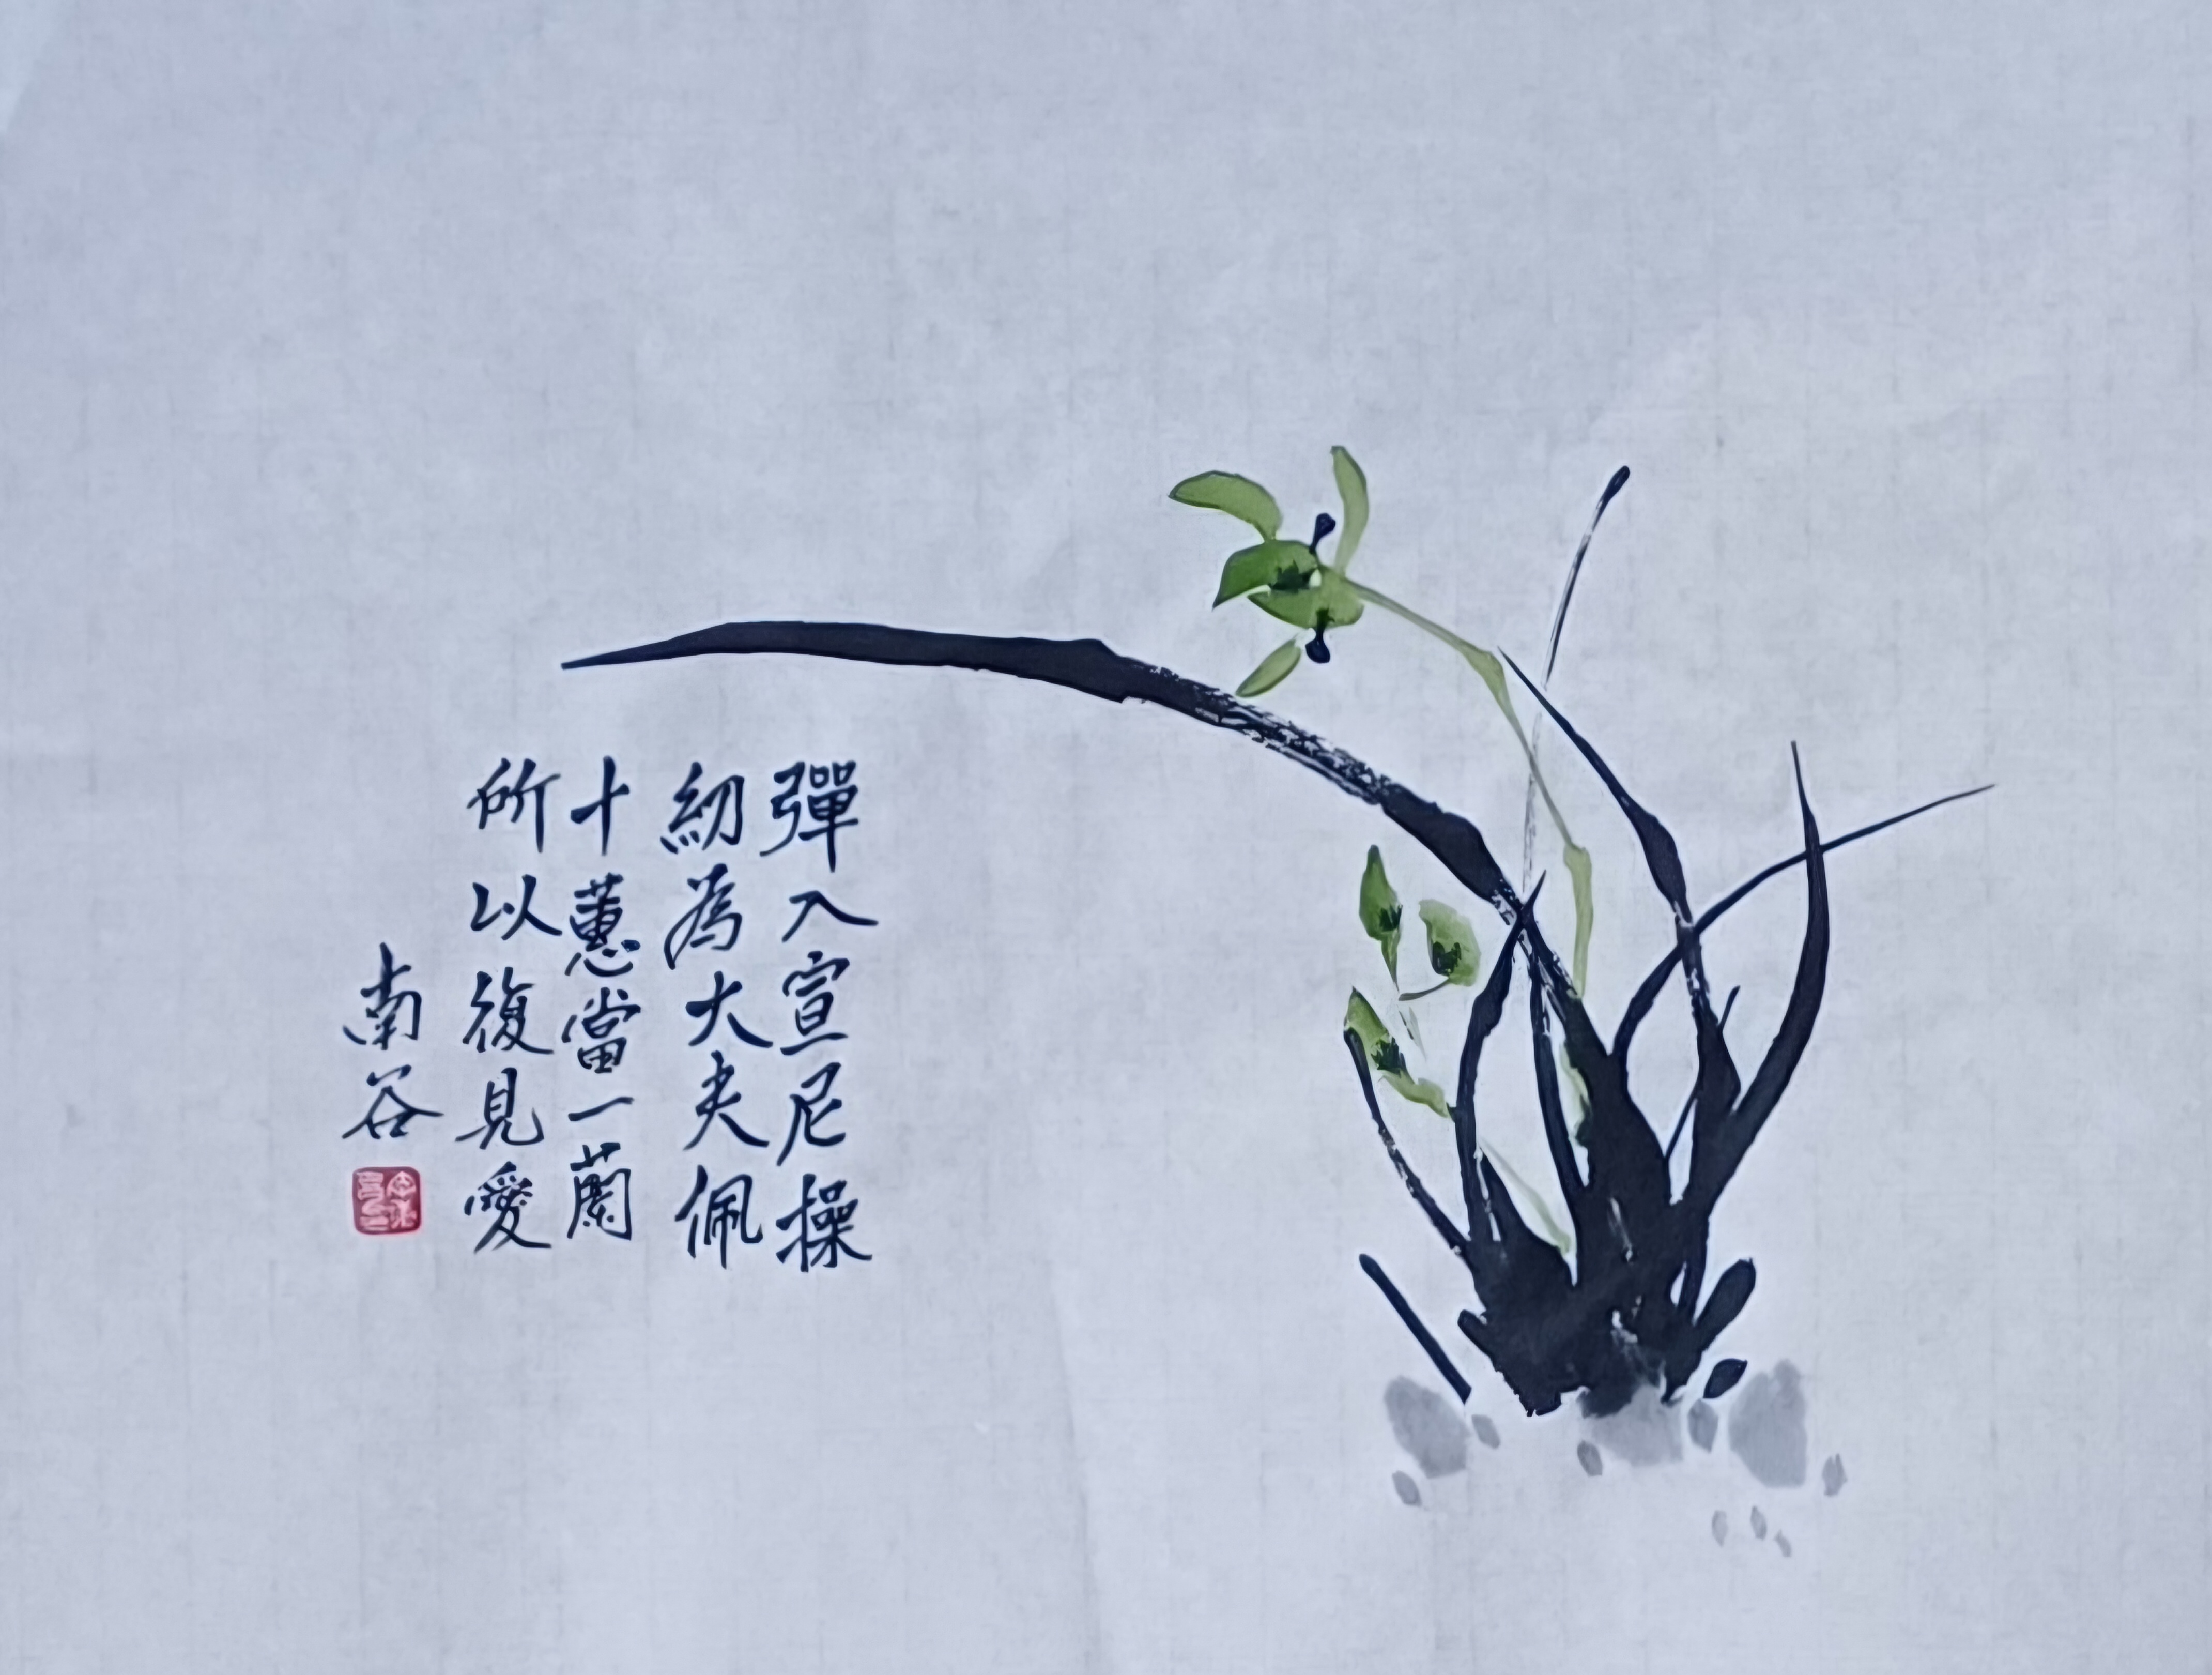 彈入宣尼操
紉為大夫佩
十蕙當一蘭
所以復見愛
南谷